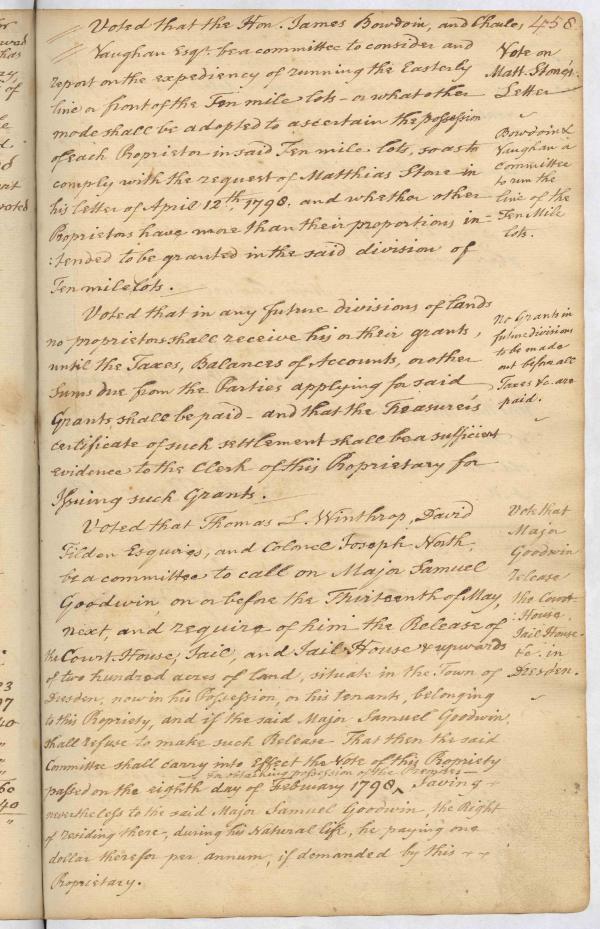 458
Voted that the Hon. James Bowdoin, and Charles
Vaughan Esqr. be a committee to consider and
report on the expediency of running the Easterly
line or front of the Ten mile lots - or what other
mode shall be adopted to ascertain the possession
of each Proprietor in said Ten mile lots, so as to
comply with the request of Matthias Stone in
his letter of April 12th. 1798. and whether other
Proprietors have more than their proportions in-
:tended to be granted in the said division of
Ten mile lots.
Vote on
Matt. Stone's
Letter
Bowdoin &
Vaughan a
Committee
to run the
line of the
Ten Mile
lots.
Voted that in any future divisions of lands
no proprietors shall receive his or their grants,
until the Taxes, Balances of Accounts, or other
Sums due from the Parties applying for said
Grants shall be paid - and that the Treasurer's
certificate of such settlement shall be a sufficient
evidence to the Clerk of this Proprietary for
Issuing such Grants.
No Grants in
future divisions
to be made
out before all
Taxes &c. are
paid.
Voted that Thomas L. Winthrop, David
Tilden Esquires, and Colonel Joseph North,
be a committee to call on Major Samuel
Goodwin, on or before the Thirteenth of May,
next, and require of him the Release of
the Court-House, Jail, and Jail House & upwards
of two hundred acres of land, situate in the Town of
Dresden, now in his Possession, or his tenants, belonging
to this Propriety, and if the said Major Samuel Goodwin,
shall refuse to make such Release That then the said
Committee shall carry into Effect the Vote of this Propriety
for obtaining possession of the Premises
passed on the eighth day of February 1798, Saving
nevertheless to the said Major Samuel Goodwin, the Right
of residing there, during his Natural life, he paying one
dollar therefor per annum, if demanded by this
Proprietary.
Vote that
Major
Goodwin
release
the Court
:House.
Jail House
&c. in
Dresden.